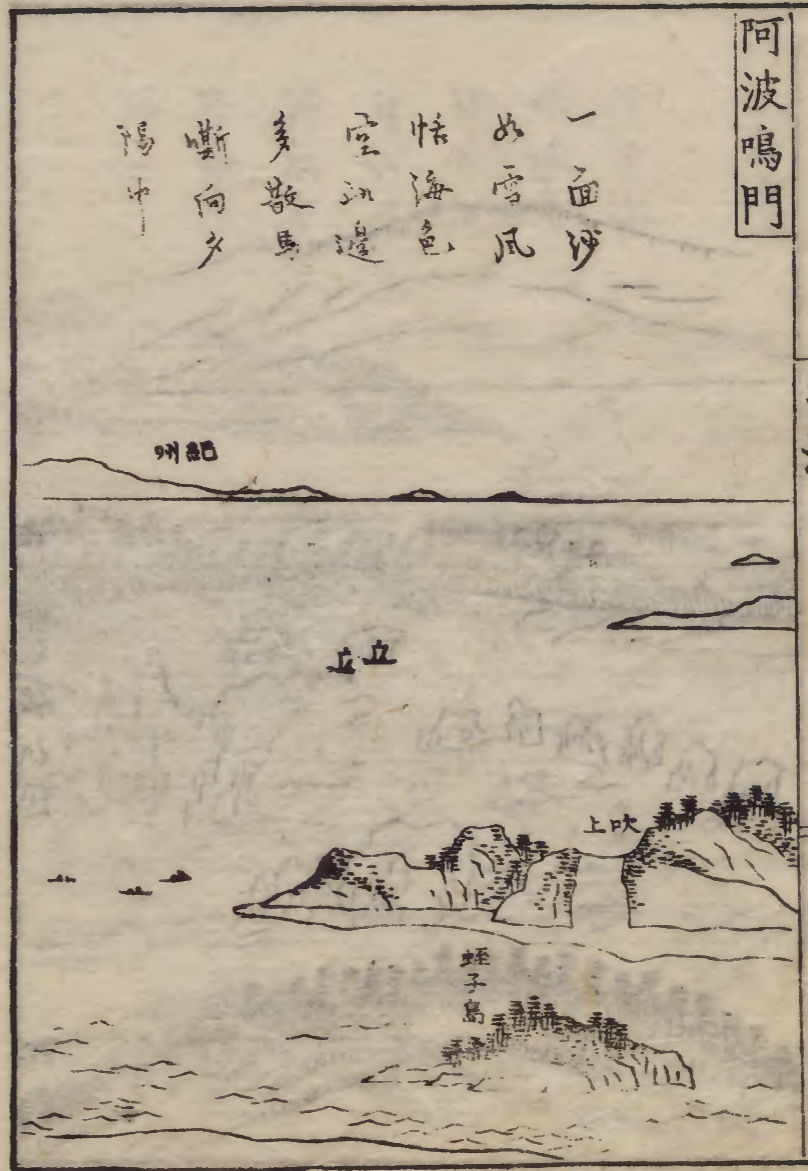 阿波鳴門
一面沙
如雪風
恬海色
空沙邊
多散馬
嘶向夕
陽中
紀州
吹上
蛭子島